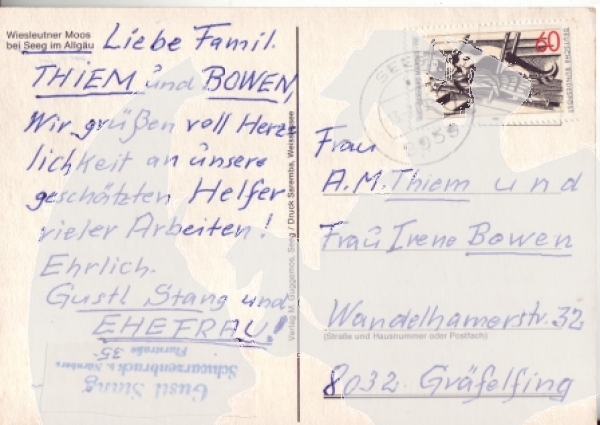 Wiesleutner Moos
bei Seeg im Allgäu
Liebe Famil.
THIEM und BOWEN,
Wir grüßen voll Herz-
lichkeit an unsere
geschätzten Helfer
vieler Arbeiten!
Ehrlich.
Gustl Stang und
EHEFRAU!
Gustl Stang
Schwarzenbruck b. Nürnberg
Flurstraße 35
Verlag M. Guggemos, Seeg / Druck Saremba, Weissensee
60
DEUTSCHE BUNDESPOST
SEEG
8959
Frau
A.M. Thiem und
Frau Irene Bowen
Wandelhamerstr. 32
(Straße und Hausnummer oder Postfach)
8032 Gräfelfing